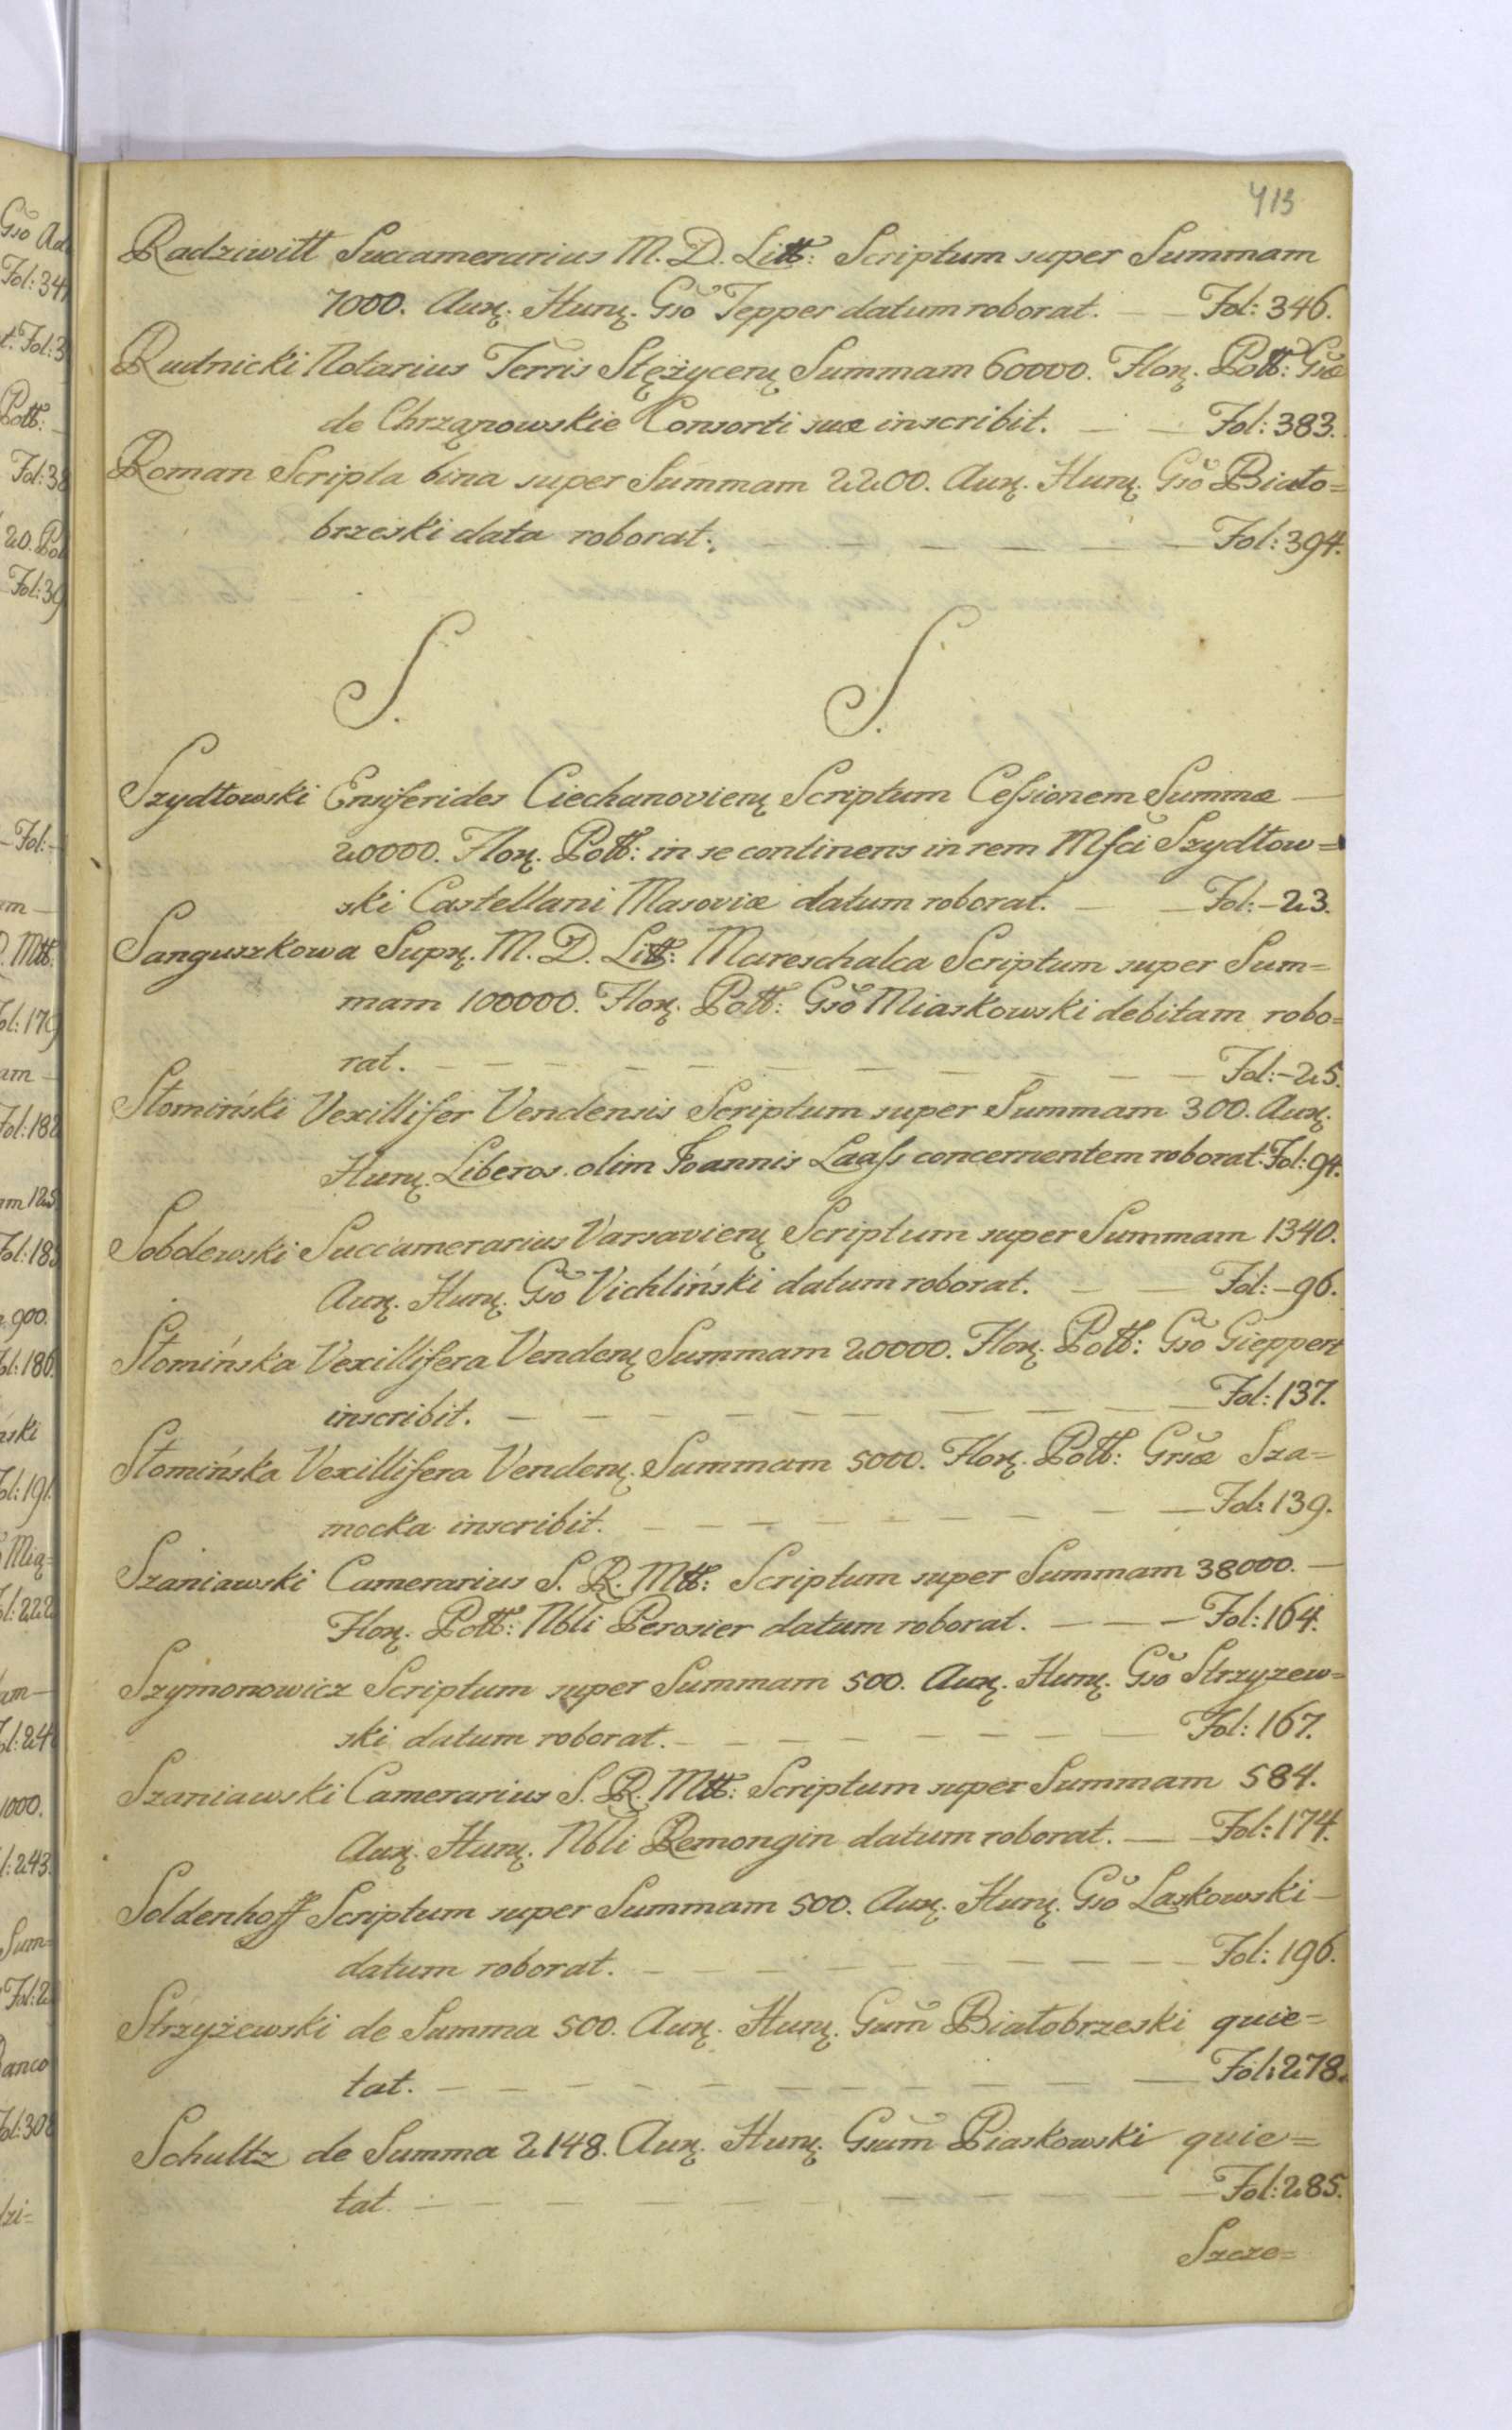 413
Radziwiłł Succamerarius M. D. Litt: Scriptum super Summam
7000. Aurę. Hunę. Gsõ Tepper datum roborat. — — Fol: 346.
Rudnicki Notarius Terris Stężycenę Summam 60000. Florę. Poltt: Gsæ
de Chrząnowskie Consorti suæ inscribit. — — Fol: 383.
Roman Scripta bina super Summam 2200. Aurę. Hunę. Gsõ Biało=
brzeski data roborat. — — — — — Fol: 394.
S. S.
Szydłowski Ensiferides Ciechanovienę Scriptum Cessionem Summæ —
20000. Florę. Poltt: in se continens in rem Mfci Szydłow=
ski Castellani Masoviæ datum roborat. — — Fol: — 23.
Sanguszkowa Suprę. M. D. Litt: Mareschalca Scriptum super Sum=
mam 100000. Florę. Poltt: Gsõ Miaskowski debitam robo=
rat. — — — — — — — — — — Fol: — 25.
Słomiński Vexillifer Vendensis Scriptum super Summam 300. Aurę.
Hunę. Liberos olim Joannis Laass concernentem roborat. Fol: 94.
Sobolewski Succamerarius Varsavienę Scriptum super Summam 1340.
Aurę. Hunę. Gsõ Vichliński datum roborat. — — Fol: — 96.
Słomińska Vexillifera Vendenę Summam 20000. Florę. Poltt: Gsõ Gieppert
inscribit. — — — — — — — — — Fol: 137.
Słomińska Vexillifera Vendenę. Summam 5000. Florę. Poltt: Grsæ Sza=
mocka inscribit. — — — — — — — — Fol: 139.
Szaniawski Camerarius S. R. Mtt: Scriptum super Summam 38000. —
Florę. Poltt: Nbli Perosier datum roborat. — — — Fol: 164.
Szymonowicz Scriptum super Summam 500. Aurę. Hunę. Gsõ Strzyzew=
ski datum roborat. — — — — — — — Fol: 167.
Szaniawski Camerarius S. R. Mtt: Scriptum super Summam 584.
Aurę. Hunę. Nbli Remongin datum roborat. — — Fol: 174.
Soldenhoff Scriptum super Summam 500. Aurę. Hunę. Gsõ Laskowski —
datum roborat. — — — — — — — — Fol: 196.
Strzyżewski de Summa 500. Aurę. Hunę. Gsum Białobrzeski quie=
tat. — — — — — — — — — Fol: 278.
Schultz de Summa 2148. Aurę. Hunę. Gsum Piaskowski quie=
tat. — — — — — — — Fol: 285.
Szcze=